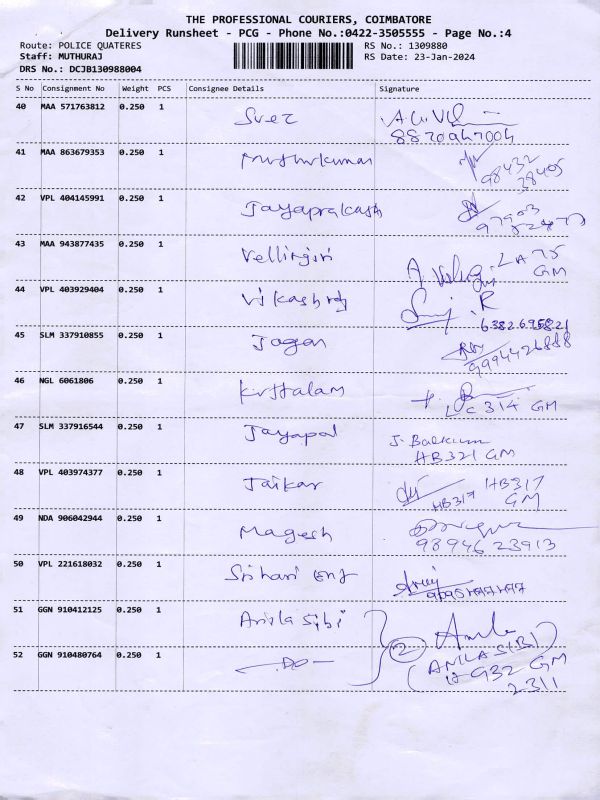 THE PROFESSIONAL COURIERS, COIMBATORE
Delivery Runsheet - PCG - Phone No.:0422-3505555 - Page No.:4
Route: POLICE QUATERES RS No.: 1309880
Staff: MUTHURAJ RS Date: 23-Jan-2024
DRS No.: DCJB130988004
S No Consignment No Weight PCS Consignee Details Signature
40 MAA 571763812 0.250 1
8870947004
41 MAA 863679353 0.250 1 Muthukumar
98432
38405
42 VPL 404145991 0.250 1 Jayaprakash
97903
43 MAA 943877435 0.250 1 Vellingiri
GM
44 VPL 403929404 0.250 1 Vikashraj R
6382695821
45 SLM 337910855 0.250 1 Jagan
9994426888
46 NGL 6061806 0.250 1
LC 314 GM
47 SLM 337916544 0.250 1 Jayapal J. Balkum
HB321 GM
48 VPL 403974377 0.250 1 Jaikar HB317 HB317
GM
49 NDA 906042944 0.250 1 Magesh
98946 23913
50 VPL 221618032 0.250 1 Srihari Eng
51 GGN 910412125 0.250 1 Anila Sibi 2
(ANILA SIBI)
52 GGN 910480764 0.250 1 -Do- 932 GM
2311